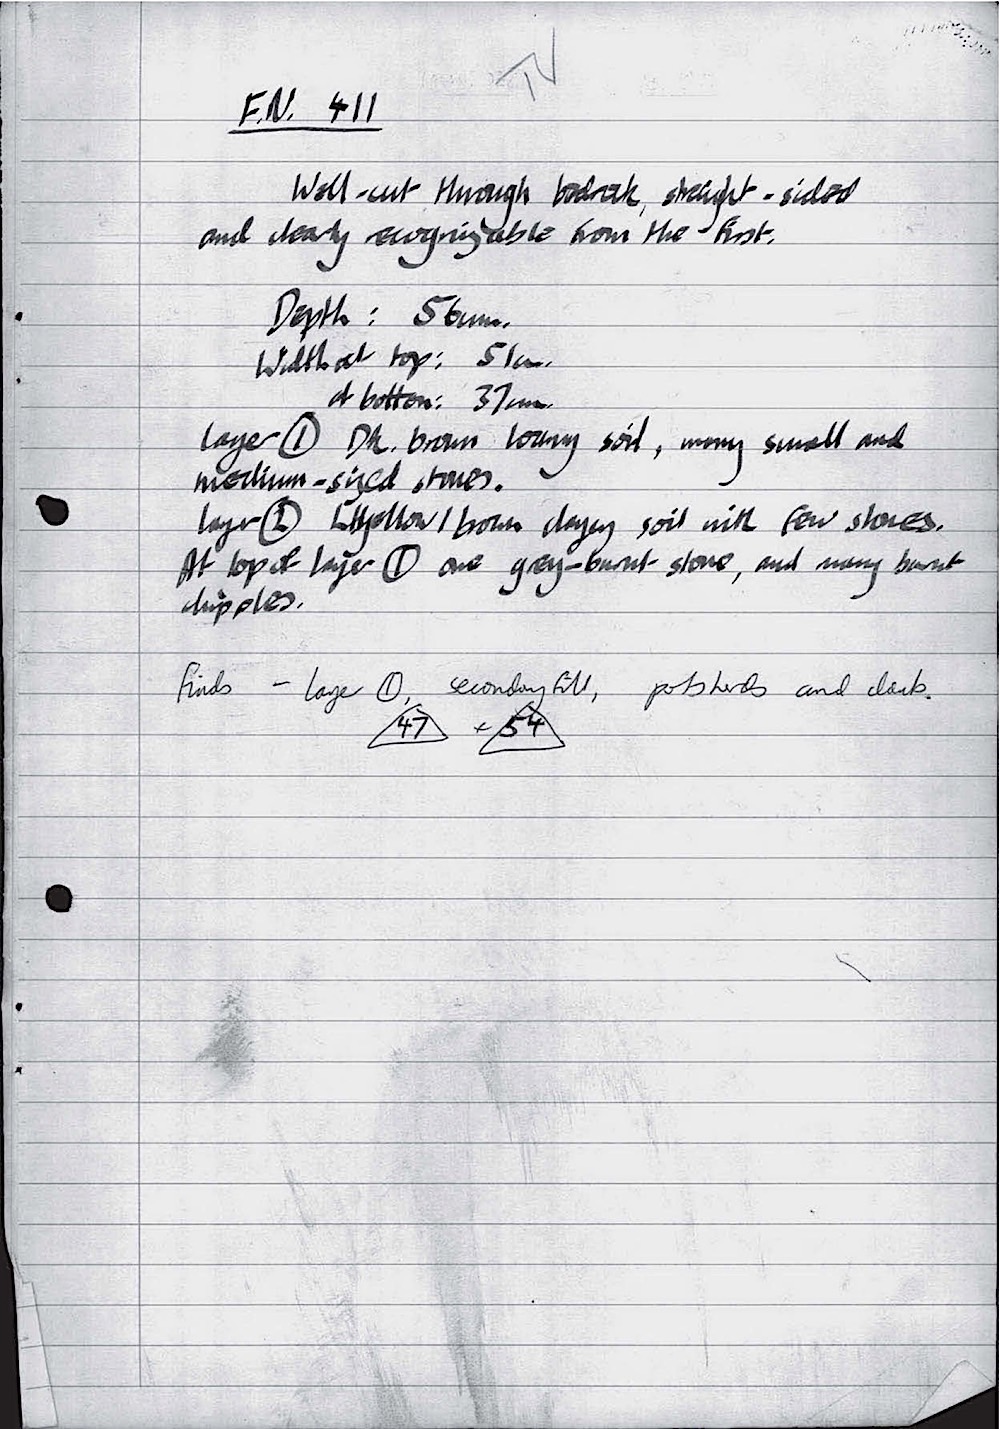 TV
F.N. 411
Well-cut through bedrock, straight-sided
and clearly recognizable from the first.
Depth: 56cm.
Width at top: 51cm.
at bottom: 37cm.
layer ① Dk. brown loamy soil, many small and
medium-sized stones.
layer ② Lt yellow/brown clayey soil with few stones.
At top of layer ① one grey-burnt stone, and many burnt
chipples.
Finds - layer ①, secondary fill, potsherds and daub.
47 + 54